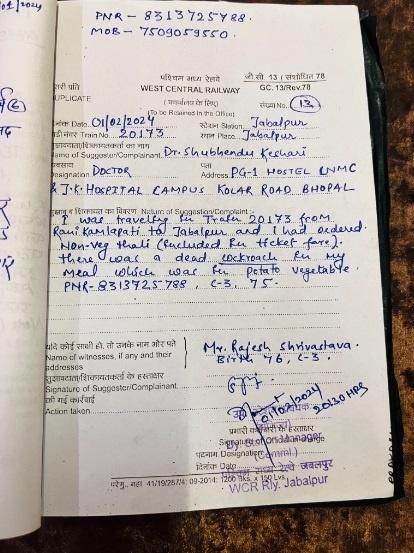 PNR - 8313725788.
MOB - 7509059550.
पश्चिम मध्य रेलवे
जी.सी. 13 / संशोधित 78
WEST CENTRAL RAILWAY
GC. 13/Rev.78
DUPLICATE
(कार्यालय के लिए)
(To be Retained in the Office)
संख्या No. 13
Date 01/02/2024 स्टेशन Station Jabalpur
Train No. 20173 स्थान Place Jabalpur
Name of Suggester/Complainant Dr. Shubhendu Keshari
पता
Designation DOCTOR Address PG-1 HOSTEL LNMC
& J.K. HOSPITAL CAMPUS KOLAR ROAD BHOPAL
सुझाव या शिकायत का विवरण Nature of Suggestion/Complaint :-
I was traveling in Train 20173 from
Rani Kamlapati to Jabalpur and i had ordered
Non-veg thali (included in ticket fare).
there was a dead cockroach in my
meal which was in potato vegetable.
PNR-8313725788, C-3, 75.
यदि कोई साक्षी हो, तो उनके नाम और पते
Name of witnesses, if any and their
addresses
Mr. Rajesh Shrivastava.
Birth 76, C-3.
सुझावदाता/शिकायतकर्ता के हस्ताक्षर
Signature of Suggester/Complainant
की गई कार्रवाई
Action taken
01/02/2024
20130 HRS
प्रभारी कर्मचारी के हस्ताक्षर
Dy. Station Manager
पदनाम Designation (Comml.)
दिनांक Date
पश्चिम मध्य रेलवे जबलपुर
WCR Rly. Jabalpur